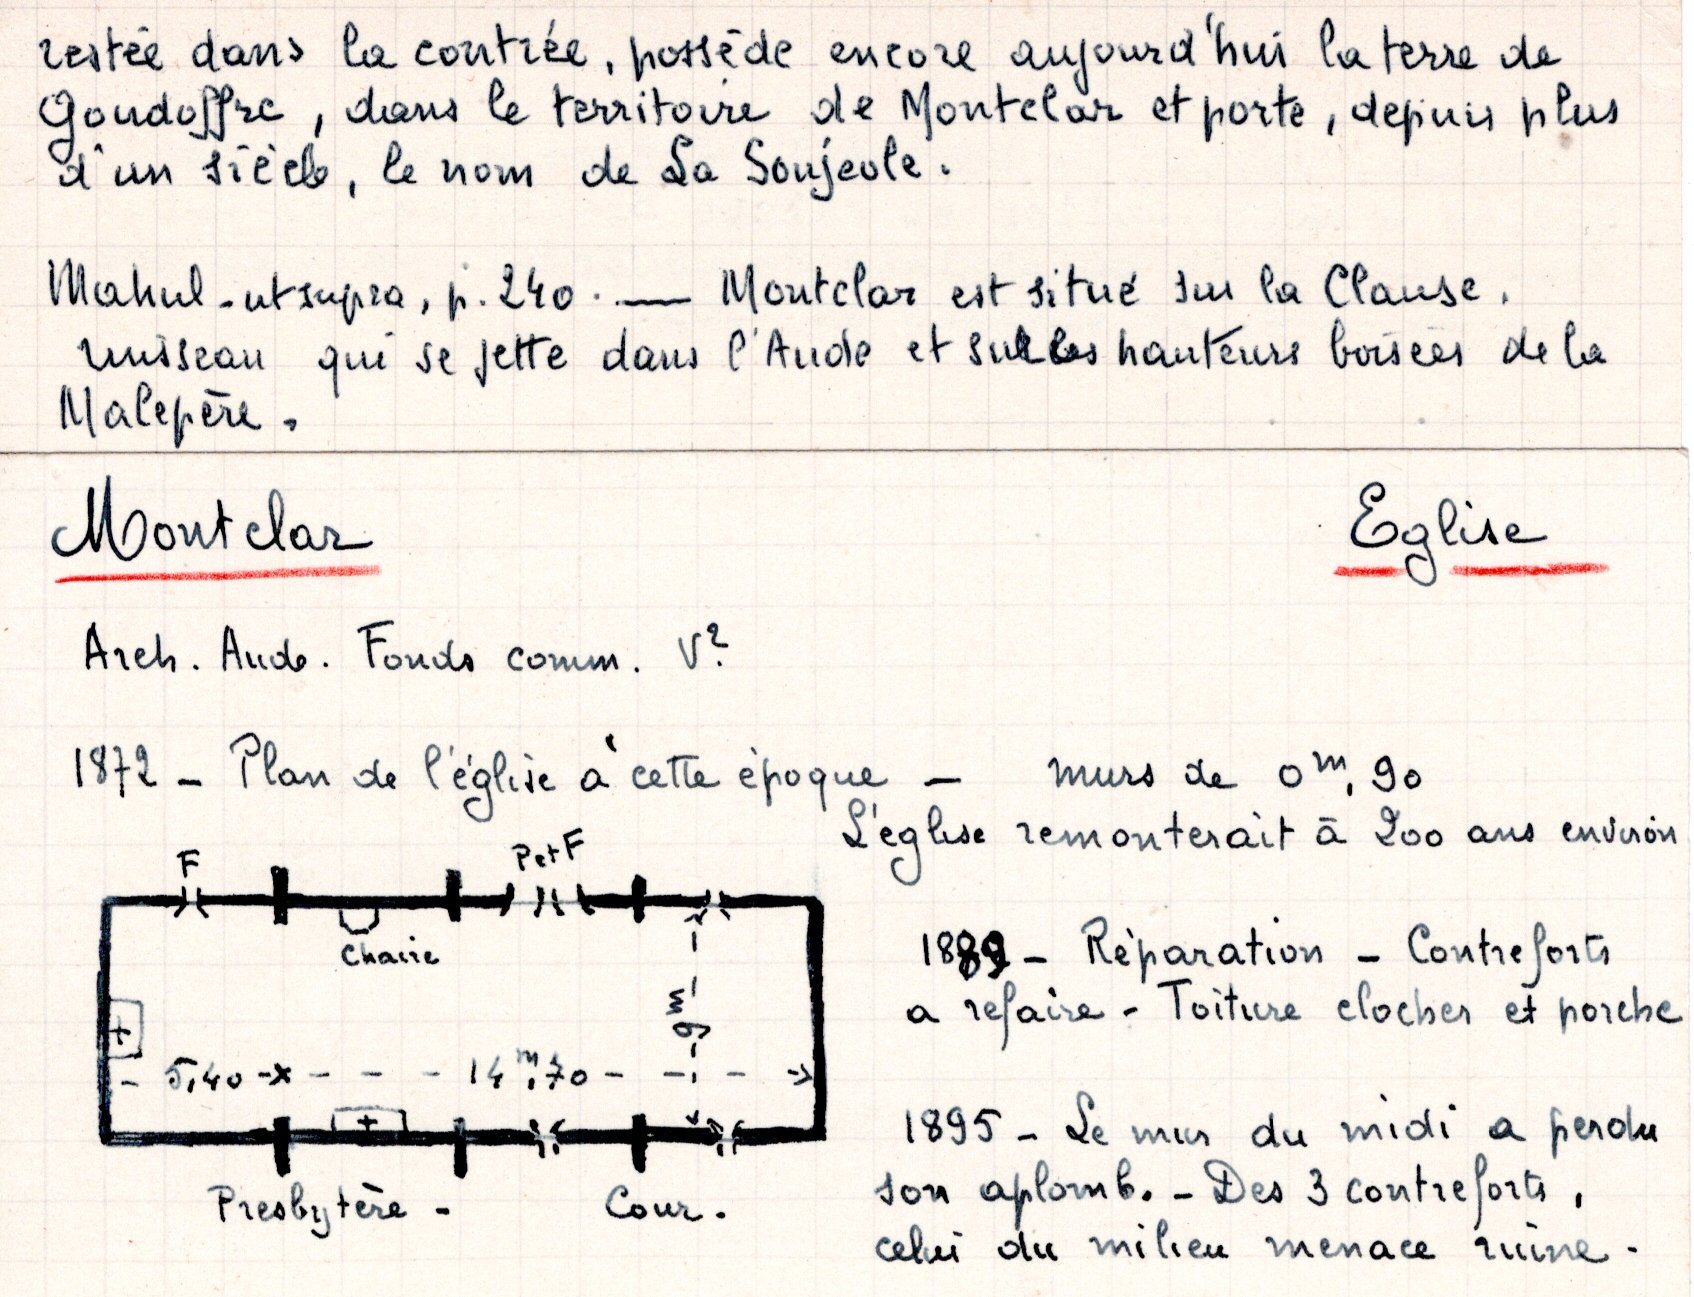 restée dans la contrée, possède encore aujourd'hui la terre de
Goudoffre, dans le territoire de Montclar et porte, depuis plus
d'un siècle, le nom de La Soujeole.
Mahul - ut supra, p. 240. — Montclar est situé sur la Clause,
ruisseau qui se jette dans l'Aude et sur les hauteurs boisées de la
Malepère.
Montclar
Eglise
Arch. Aude. Fonds comm. V?
1872 - Plan de l'église à cette époque - murs de 0m,90
L'église remonterait à 200 ans environ
F
P et F
Chaire
+
5,40
14m,70
6m
+
Presbytère -
Cour.
1889 - Réparation - Contreforts
a refaire - Toiture clocher et porche
1895 - Le mur du midi a perdu
son aplomb. - Des 3 contreforts,
celui du milieu menace ruine.